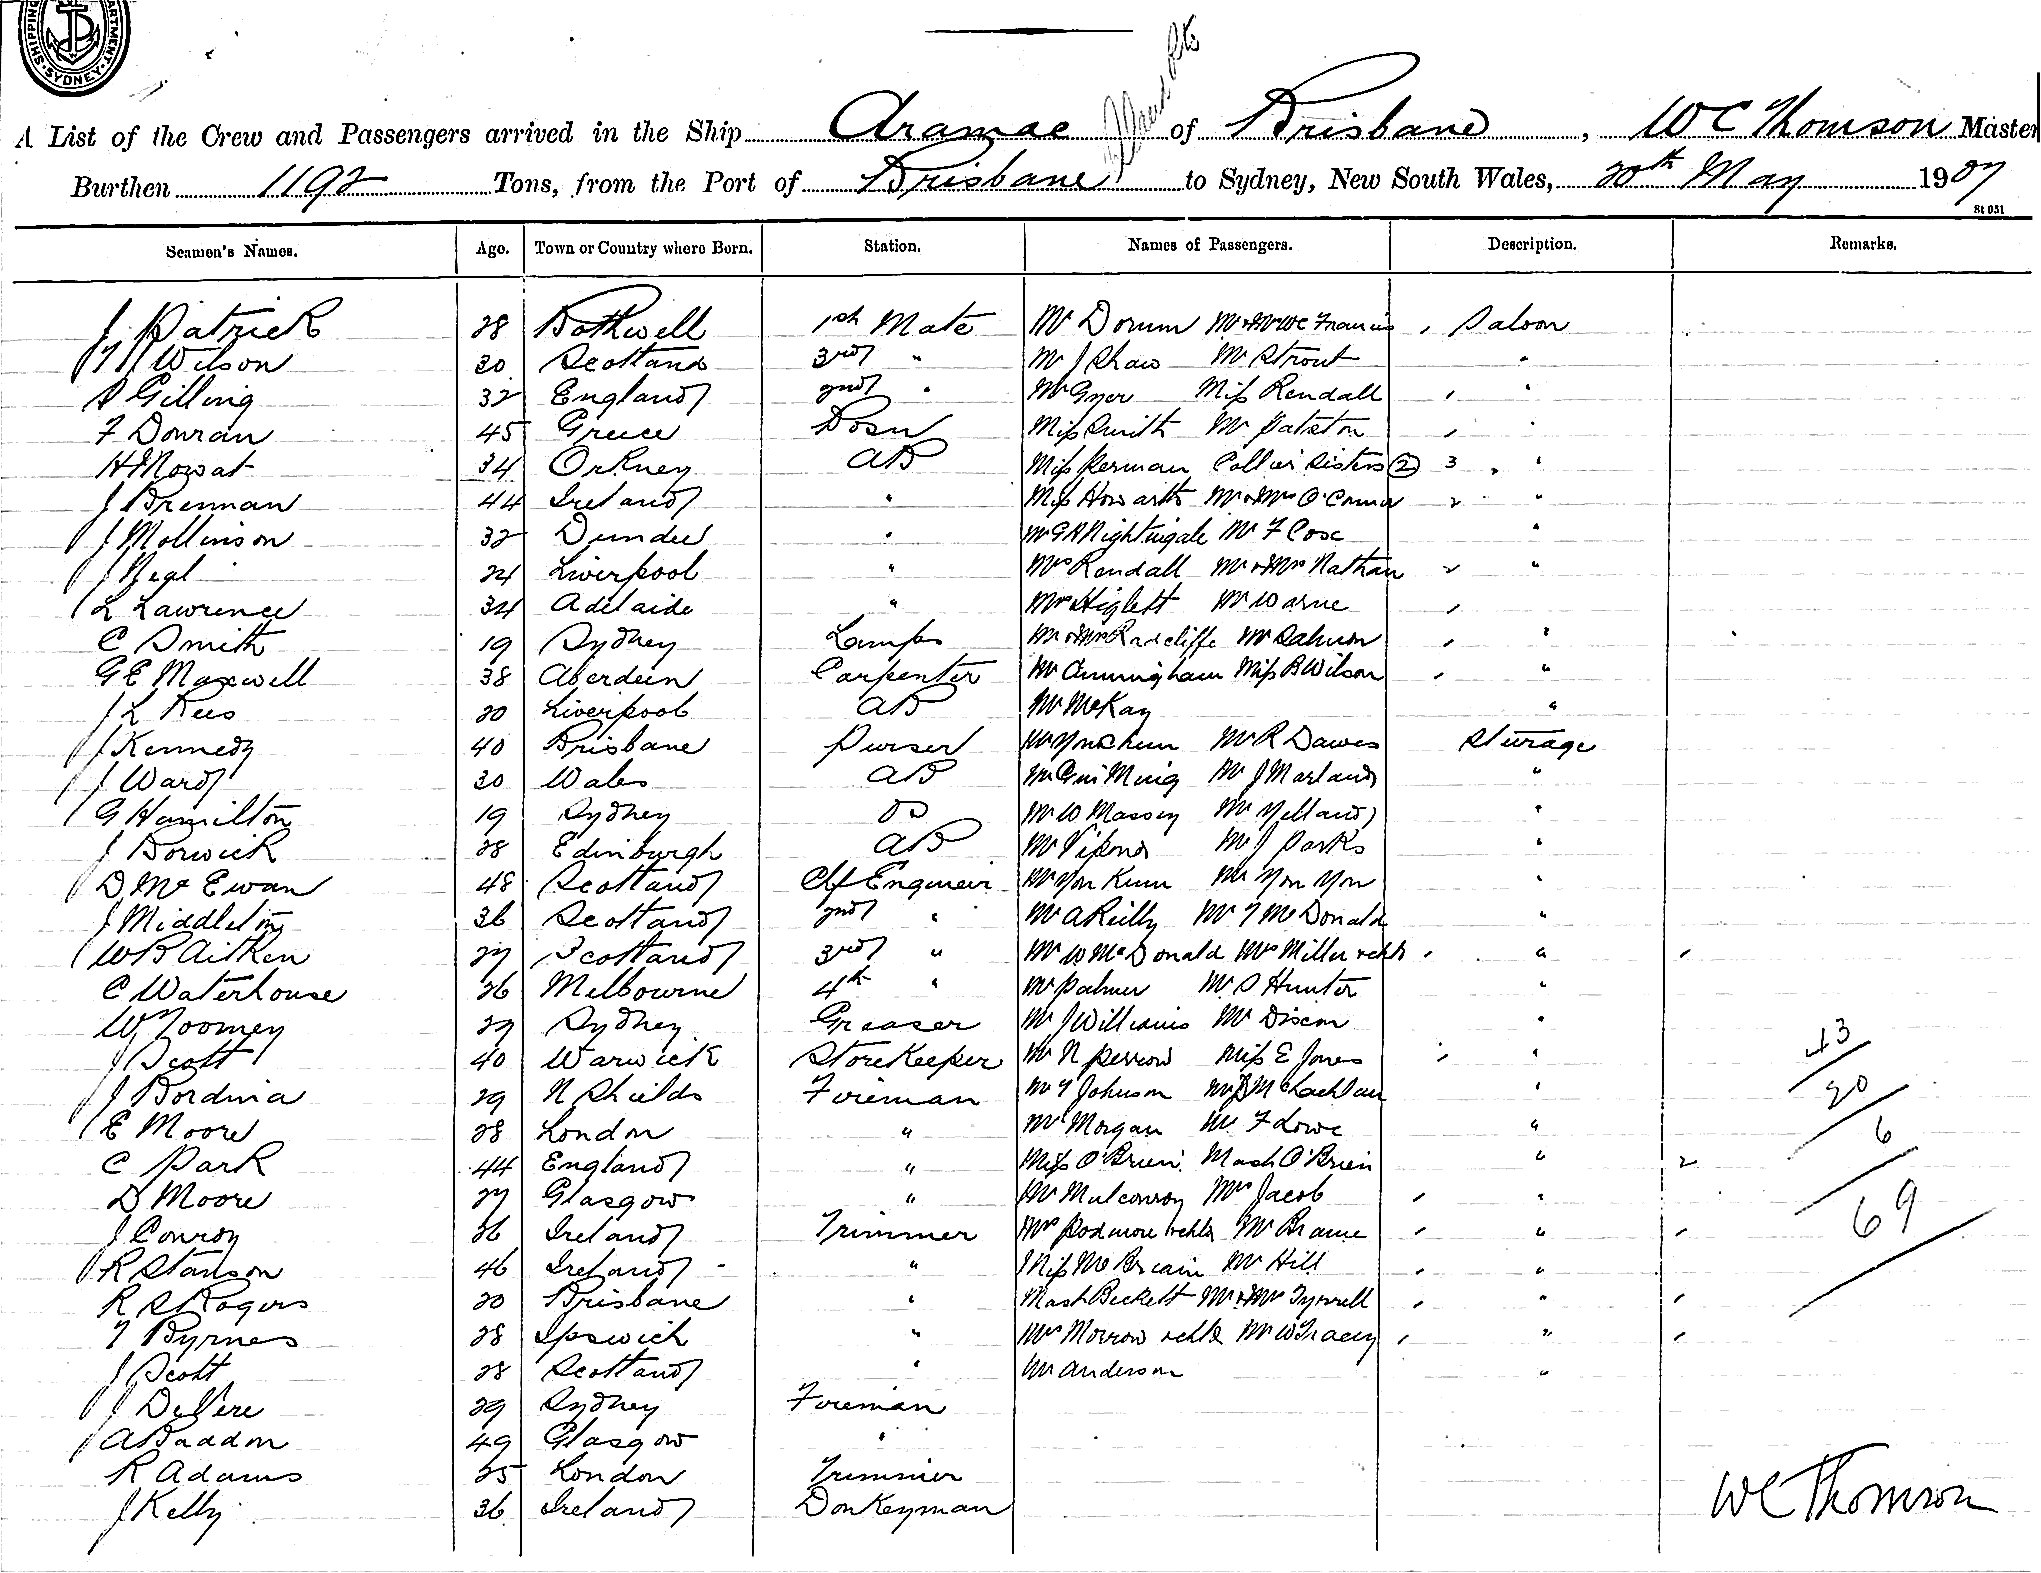 SHIPPING DEPARTMENT SYDNEY
A List of the Crew and Passengers arrived in the Ship Aramac of Brisbane, W C Thomson Master
Burthen 1192 Tons, from the Port of Brisbane to Sydney, New South Wales, 20th May 1907
St 051
Seamen's Names. Age. Town or Country where Born. Station. Names of Passengers. Description. Remarks.
J Patrick 28 Bothwell 1st Mate Mr Dorum Mr & Mrs WC Francis , Saloon
Wilson 30 Scotland 3rd " Mr J Shaw Mr Strout "
S Gilling 32 England 2nd " Mr Gyer Miss Rendall , "
F Donran 45 Greece Bosn Miss Smith Mr Patston , "
H Mowat 34 Orkney AB Miss Kerman Collier Sisters (2) 3 , "
J Brennan 44 Ireland " Miss Howarth Mr & Mrs O'Connor 2 "
J Mollinson 32 Dundee " Mr G A Nightingale Mr F Cox "
J Neal 24 Liverpool " Mrs Rendall Mr & Mrs Nathan 2 "
L Lawrence 34 Adelaide " Mrs Higlett Mr Warne ,
C Smith 19 Sydney Lamps Mr & Mrs Radcliffe Mr Salmon , "
G E Maxwell 38 Aberdeen Carpenter Mr Cunningham Miss B Wilson , "
J L Rees 20 Liverpool AB Mr McKay "
J Kennedy 40 Brisbane Purser Mr R Dawes Sturage
J Ward 30 Wales AB Mr J Marland "
G Hamilton 19 Sydney OS Mr W Massey Mr Yelland "
J Borwick 28 Edinburgh AB Mr Vipond Mr J Parks "
D McEwan 48 Scotland Chf Engineer Mr Yon Kum Mr Yon Yon "
J Middleton 36 Scotland 2nd " Mr A Reilly Mr T McDonald "
W B Aitken 27 Scotland 3rd " Mr W McDonald Mrs Miller & chld , " ,
C Waterhouse 26 Melbourne 4th " Mr Palmer Mr S Hunter "
W Toomey 29 Sydney Greaser Mr J Williams Mr Dixon "
J Scott 40 Warwick Storekeeper Mr N Perrow Miss E Jones , "
J Bordina 29 N Shields Fireman Mr T Johnson McLachlan "
E Moore 28 London " Mr Morgan Mr F Lowe "
C Park 44 England " Miss O'Brien Mast O'Brien " 2
D Moore 27 Glasgow " Mr Mulconroy Mrs Jacob , "
J Conroy 26 Ireland Trimmer Mrs Podmore & chld Mr Brame , " ,
R Stanson 46 Ireland " Miss McBrcain Mr Hill , "
R S Rogers 20 Brisbane " Mast Beckett Mr & Mrs Tyrrell , " ,
T Byrnes 28 Ipswich " Mrs Morrow & chld Mr W Tracey , " ,
J Scott 28 Scotland " Mr Anderson "
J DeVere 29 Sydney Fireman
A Baddon 49 Glasgow "
R Adams 25 London Trimmer
J Kelly 36 Ireland Donkeyman
43
20
6
69
W C Thomson